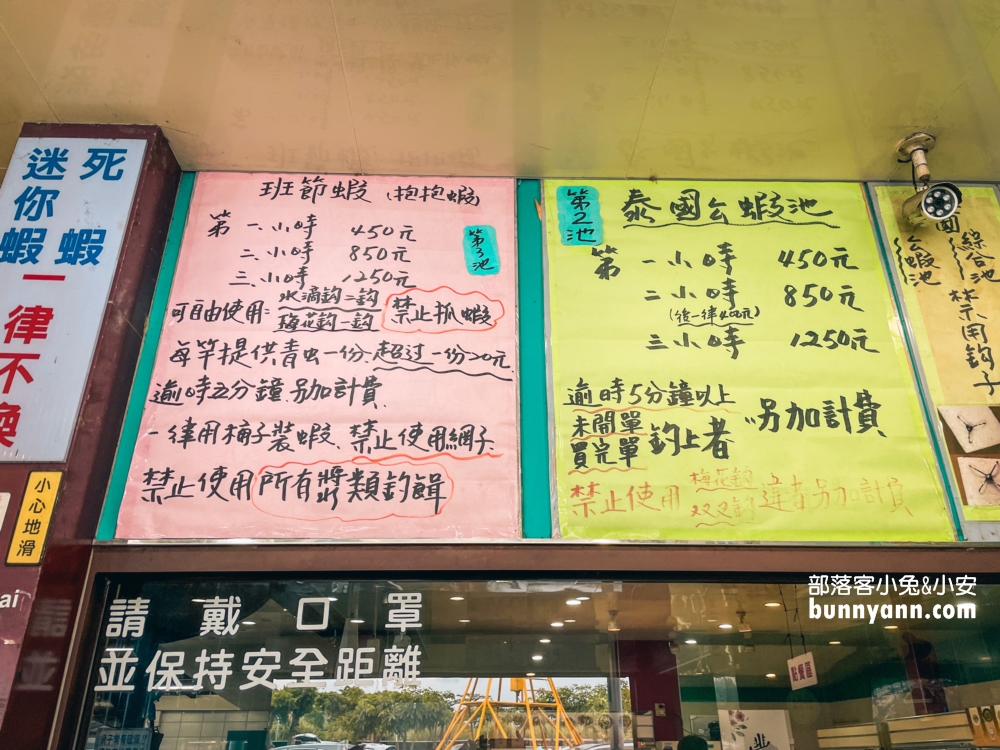 死蝦
迷你蝦
一律不換
小心地滑
班節蝦 (抱抱蝦)
第3池
第一小時 450元
二小時 850元
三小時 1250元
可自由使用: 水滴鈎二鈎
梅花鈎一鈎
禁止抓蝦
每竿提供青虫一份、超过一份20元
逾時五分鐘另加計費
一律用桶子裝蝦、禁止使用網子
禁止使用所有醬類鈎餌
第2池
泰國公蝦池
第一小時 450元
二小時 850元
(後一律400元)
三小時 1250元
逾時5分鐘以上
未開單
買完單
鈎上者
另加計費
禁止使用
梅花鈎
双叉鈎
違者另加計費
綜合池
公蝦池
禁用鈎子
請戴口罩
並保持安全距離
點餐區
部落客小兔&小安
bunnyann.com